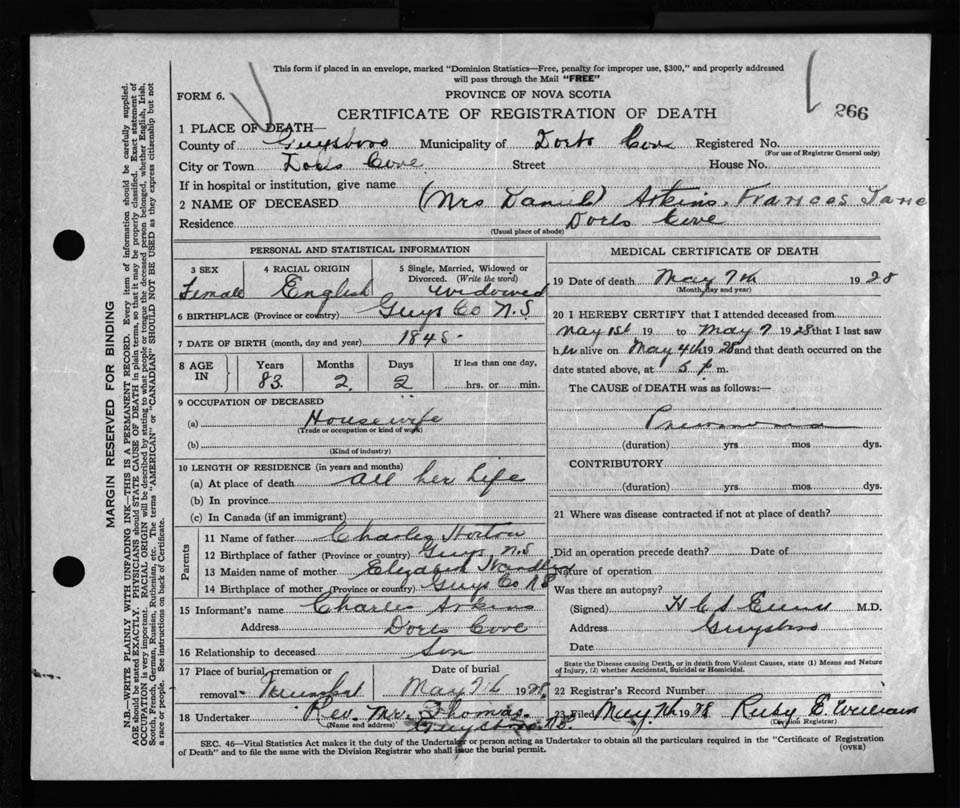 This form if placed in an envelope, marked "Dominion Statistics—Free, penalty for improper use, $300," and properly addressed
will pass through the Mail "FREE"
FORM 6.
PROVINCE OF NOVA SCOTIA
CERTIFICATE OF REGISTRATION OF DEATH
266
1 PLACE OF DEATH—
County of Guysboro Municipality of Dorts Cove Registered No.
(For use of Registrar General only)
City or Town Dorts Cove Street House No.
If in hospital or institution, give name
2 NAME OF DECEASED (Mrs Daniel) Atkins, Frances Jane
Residence Dorts Cove
(Usual place of abode)
PERSONAL AND STATISTICAL INFORMATION
3 SEX Female
4 RACIAL ORIGIN English
5 Single, Married, Widowed or Divorced. (Write the word) Widowed
6 BIRTHPLACE (Province or country) Guys Co N.S
7 DATE OF BIRTH (month, day and year) 1845-
8 AGE IN Years 83. Months 2. Days 2 If less than one day, hrs. or min.
9 OCCUPATION OF DECEASED
(a) Housewife
(Trade or occupation or kind of work)
(b)
(Kind of industry)
10 LENGTH OF RESIDENCE (in years and months)
(a) At place of death all her life
(b) In province
(c) In Canada (if an immigrant)
Parents
11 Name of father Charles Horton
12 Birthplace of father (Province or country) Guys N.S
13 Maiden name of mother
14 Birthplace of mother (Province or country) Guys Co N S
15 Informant's name Charles Atkins
Address Dorts Cove
16 Relationship to deceased Son
17 Place of burial, cremation or removal-
Date of burial May 1928
18 Undertaker Rev. Mr. Thomas.
(Name and address) Guysboro. N.S.
MEDICAL CERTIFICATE OF DEATH
19 Date of death May 7th 1928
(Month, day and year)
20 I HEREBY CERTIFY that I attended deceased from
May 1st 19 to May 7 1928 that I last saw
her alive on May 4th 1928 and that death occurred on the
date stated above, at 5 p m.
The CAUSE of DEATH was as follows:—
Pneumonia
(duration) yrs mos dys.
CONTRIBUTORY
(duration) yrs mos dys.
21 Where was disease contracted if not at place of death?
Did an operation precede death? Date of
Nature of operation
Was there an autopsy?
(Signed) M.D.
Address Guysboro
Date
State the Disease causing Death, or in death from Violent Causes, state (1) Means and Nature
of Injury, (2) whether Accidental, Suicidal or Homicidal.
22 Registrar's Record Number
23 Filed May 7th 1928 Ruby E.
(Division Registrar)
SEC. 46—Vital Statistics Act makes it the duty of the Undertaker or person acting as Undertaker to obtain all the particulars required in the "Certificate of Registration
of Death" and to file the same with the Division Registrar who shall issue the burial permit.
(OVER)
MARGIN RESERVED FOR BINDING
N.B.—WRITE PLAINLY WITH UNFADING INK—THIS IS A PERMANENT RECORD. Every item of information should be carefully supplied.
AGE should be stated EXACTLY. PHYSICIANS should STATE CAUSE OF DEATH in plain terms, so that it may be properly classified. Exact statement of
OCCUPATION is very important. RACIAL ORIGIN will be described by stating to what people or tongue the deceased person belonged, whether English, Irish,
Scotch, French, German, Russian, Ruthenian, etc. The terms "AMERICAN" or "CANADIAN" SHOULD NOT BE USED as they express citizenship but not
a race or people. See instructions on back of Certificate.